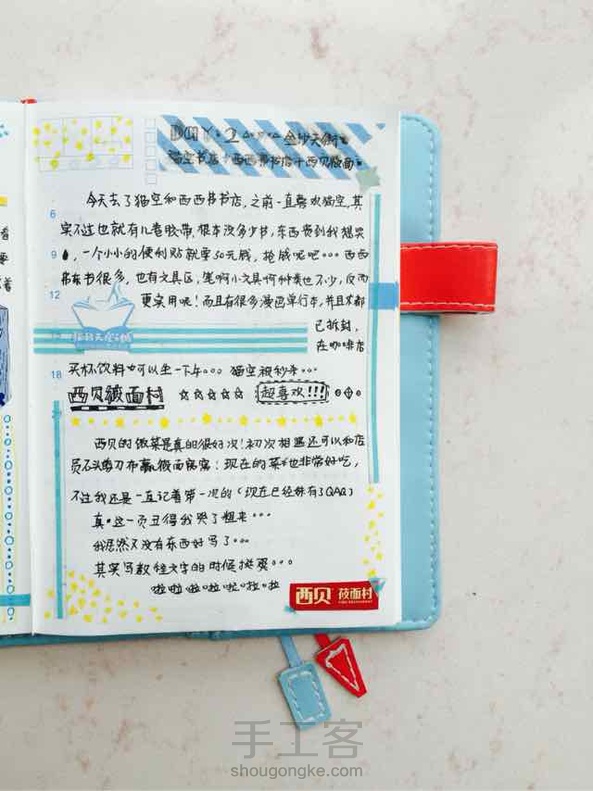 DAY:2 金沙天街
猫空书店+西西弗书店+西贝莜面
今天去了猫空和西西弗书店,之前一直喜欢猫空,其
6
实不过也就有几卷胶带,根本没多少书,东西贵到我想哭
9
一个小小的便利贴就要30元钱,抢钱呢吧。。。西西
弗书很多,也有文具区,笔啊小文具啊种类也不少,反而
12
更实用呢!而且有很多漫画单行本,并且求都
已拆封,
15
在咖啡店
18
买杯饮料也可以坐一下午。。。猫空被秒杀。。。
西贝莜面村 ☆☆☆☆☆ 超喜欢!!!
西贝的做菜是真的很好次!初次相遇还可以和店
员石头剪刀布赢莜面窝窝!现在的菜也非常好吃,
不过我还是一直记着第一次的(现在已经妹有了QAQ)
真 这一页丑得我哭了粗来。。。
我居然又没有东西好写了。。。
其实写数程文字的时候挺爽。。。
啦啦啦啦啦啦啦
西贝 莜面村
手工客
shougongke.com